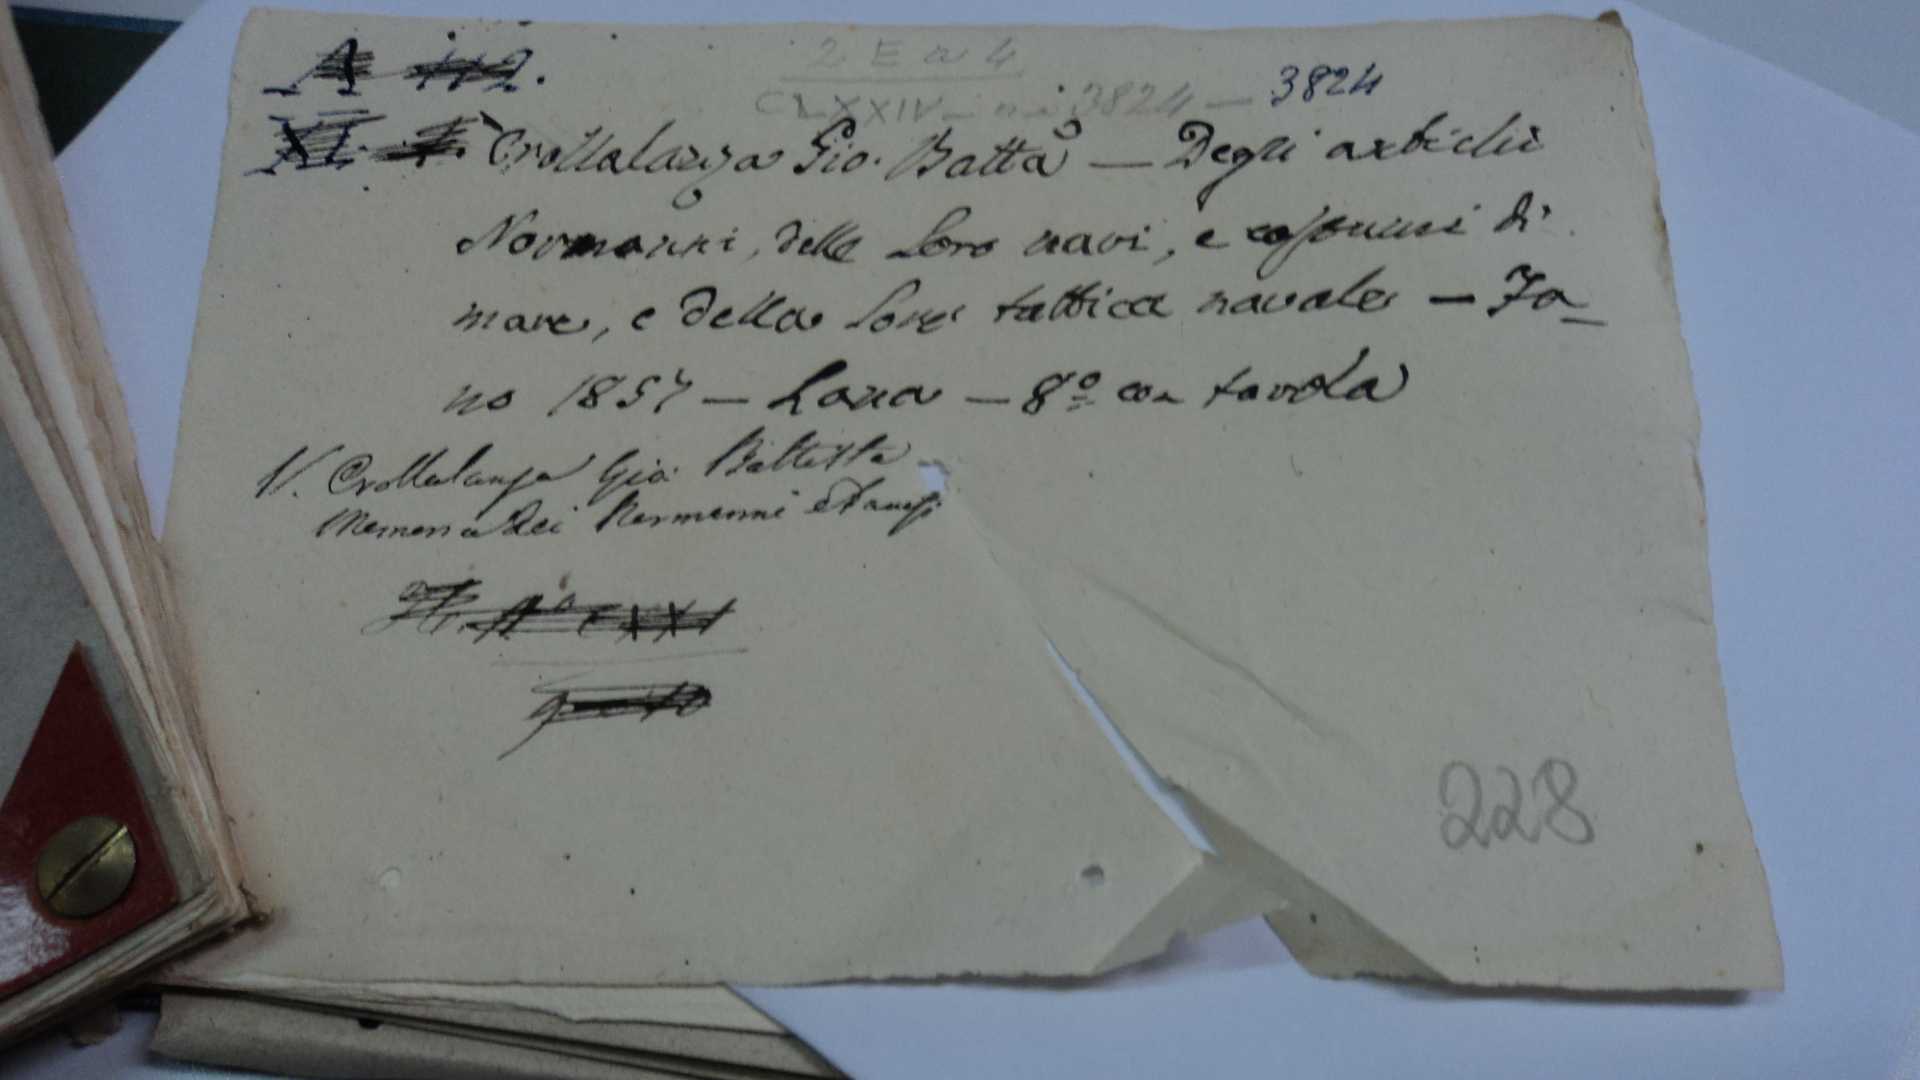 A 112.
2 E a 4
CLXXIV — 3824 — 3824
XI. Crollalanza Gio. Batta — Degli antichi
Normanni, delle loro navi, e costumi di
mare, e della loro tattica navale — Fa_
no 1857 — Lana — 8º con tavola
V. Crollalanza Gio: Battista
Memoria dei Normanni e Danesi
228